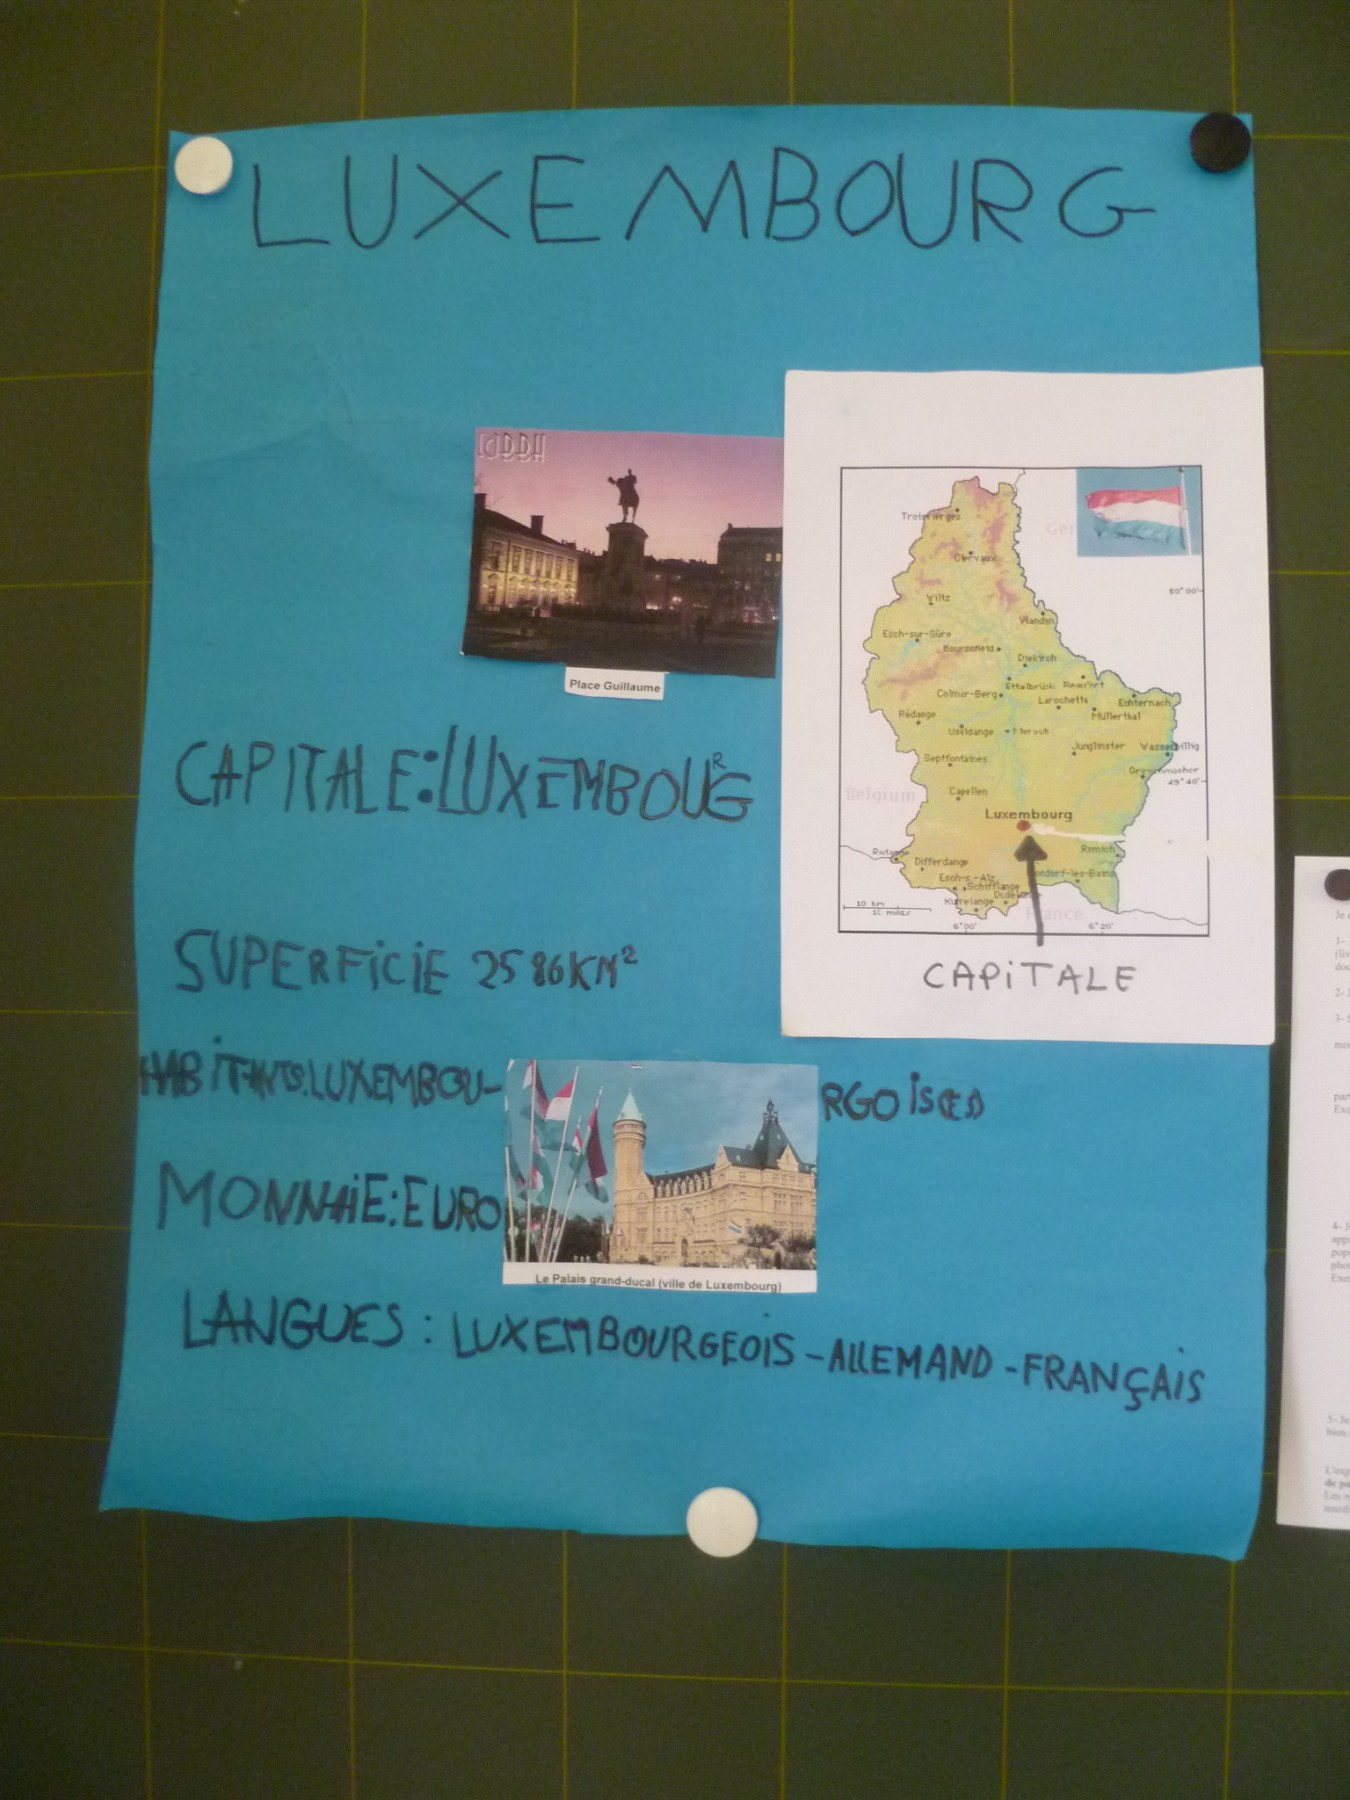 LUXEMBOURG
Place Guillaume
Troisvierges
Clervaux
Wiltz
Vianden
Esch-sur-Sûre
Bourscheid
Diekirch
Ettelbrück
Colmar-Berg
Larochette
Echternach
Müllerthal
Rédange
Useldange
Mersch
Junglinster
Wasserbillig
Septfontaines
Grevenmacher
Capellen
Belgium
Luxembourg
Remich
Differdange
Esch-s.-Alz.
Schifflange
Kurrelange
France
50°00'
49°40'
10 km
10 miles
6°00'
6°20'
CAPITALE
CAPITALE: LUXEMBOURG
SUPERFICIE 2586 KM²
HABITANTS: LUXEMBOU-RGOIS(ES)
MONNAIE: EURO
Le Palais grand-ducal (ville de Luxembourg)
LANGUES : LUXEMBOURGEOIS - ALLEMAND - FRANÇAIS
1-
2-
3- S
4- J
5- Je
bien